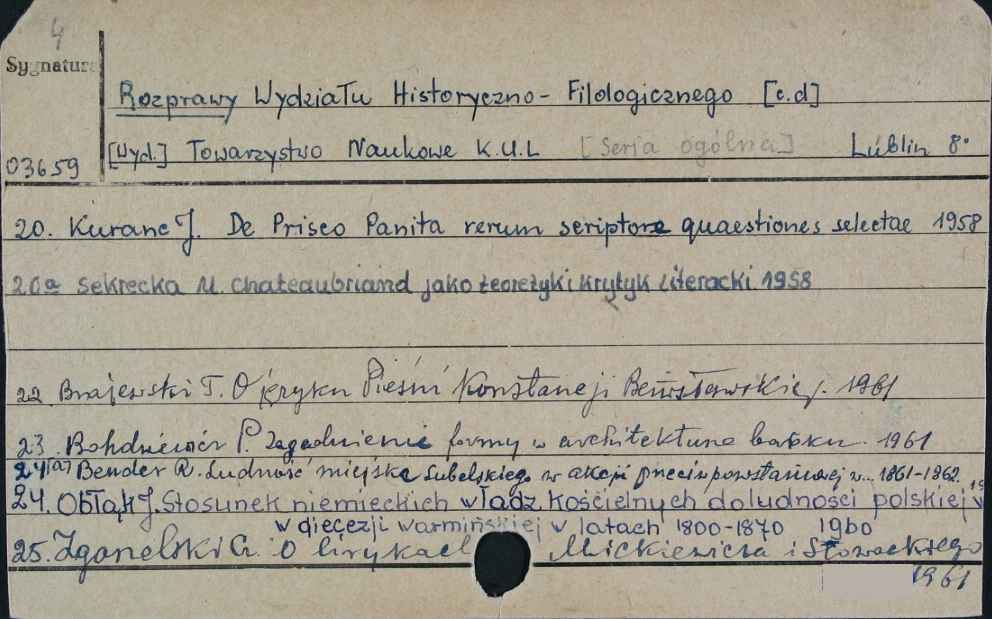 4
Sygnatura
Rozprawy Wydziału Historyczno-Filologicznego [c.d]
03659 [Wyd.] Towarzystwo Naukowe K.U.L [Seria ogólna] Lublin 8°
20. Kuranc J. De Prisco Panita rerum scriptore quaestiones selectae 1958
20a Sekrecka M. Chateaubriand jako teoretyki krytyk literacki 1958
22 T. O języku Pieśni Konstancji 1961
23. Bohdziewicz P. Zagadnienie formy w architekturze baroku. 1961
24[a] Bender R. Ludność miejska Lubelskiego w akcji przedpowstaniowej w... 1861-1862. 19
24. Obłąk J. Stosunek niemieckich władz kościelnych do ludności polskiej w
w diecezji warmińskiej w latach 1800-1870 1960
25. Zgorzelski Cz. O lirykach Mickiewicza i Słowackiego
1961